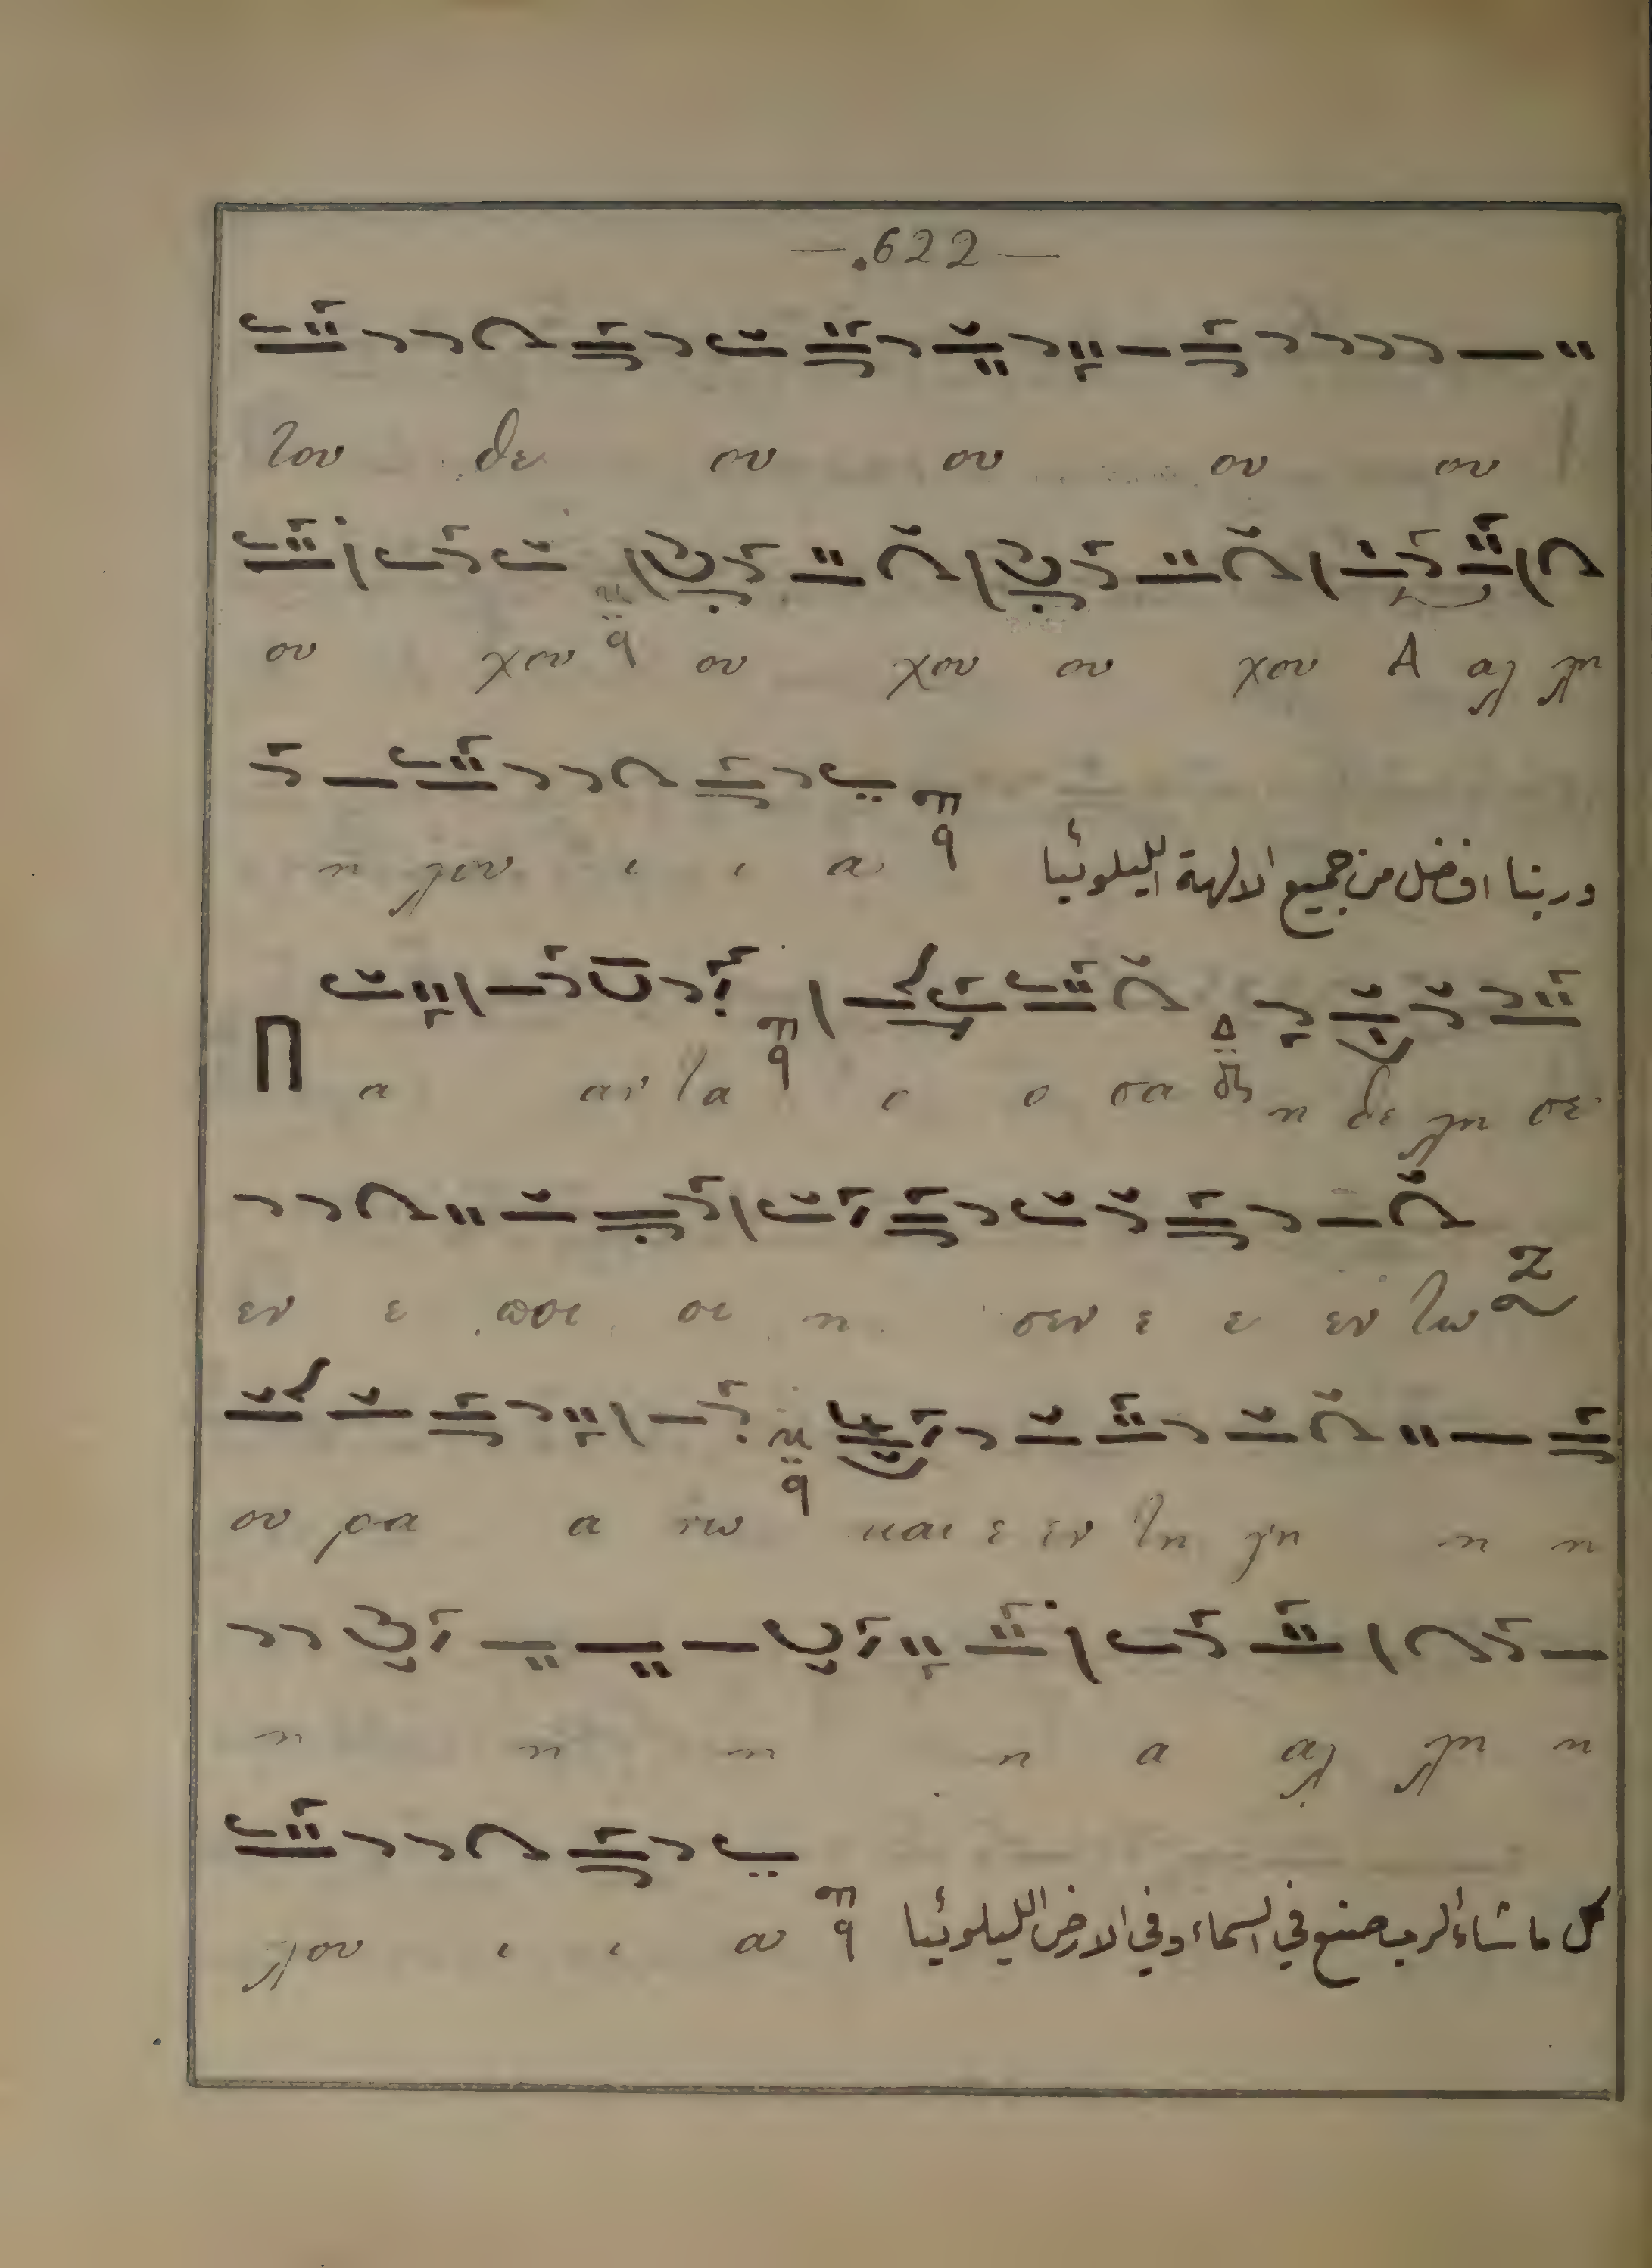 — .622 —
του δε ου ου ου ου
ου χου ου χου ου χου Α αλ λη
η λου ι ι α وربنا افضل من جميع الالهة الليلوئيا
Π α αν τα ο ο σα η δε λη σε
εν ε ποι οι η σεν ε ε εν τω
ου ρα α νω και ε εν τη γη η η
η η η η α αλ λη η
λου ι ι α كل ما شاء الرب صنع في السماء وفي الارض الليلوئيا